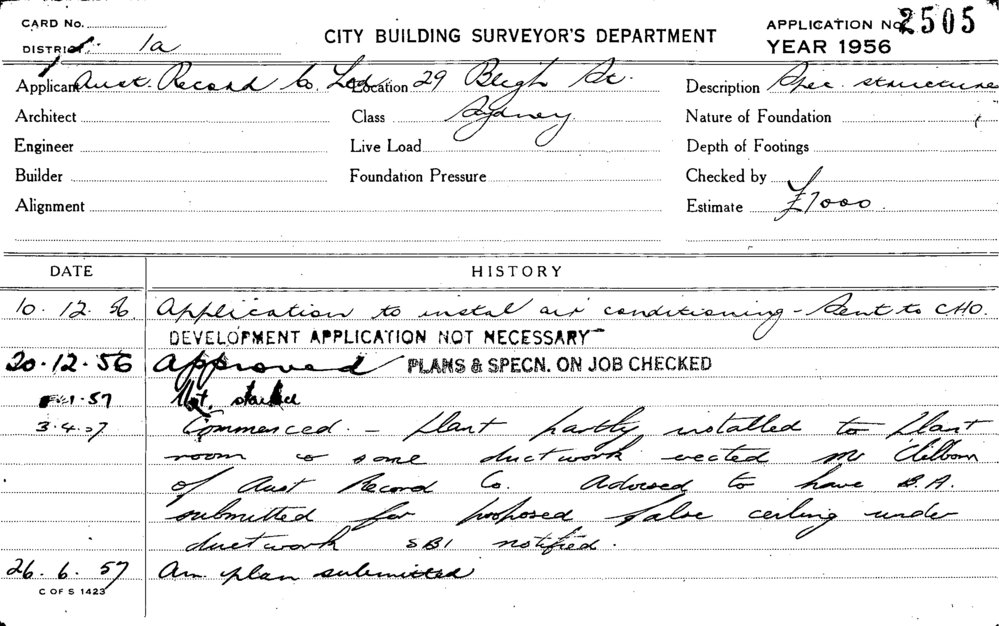 CARD No.
DISTRICT 1a
CITY BUILDING SURVEYOR'S DEPARTMENT
APPLICATION No 2505
YEAR 1956
Applicant Aust. Record Co. Ltd Location 29 Bligh St. Description Spec. structure
Architect Class Sydney Nature of Foundation
Engineer Live Load Depth of Footings
Builder Foundation Pressure Checked by
Alignment Estimate £7000
DATE HISTORY
10. 12. 56 Application to instal air conditioning - Sent to CHO.
DEVELOPMENT APPLICATION NOT NECESSARY
20.12.56 Approved PLANS & SPECN. ON JOB CHECKED
1.57 Not started
3.4.57 Commenced. - Plant partly installed to Plant
room & some ductwork erected Mr
of Aust Record Co. Advised to have B.A.
submitted for proposed false ceiling under
ductwork SBI notified.
26. 6. 57 Am. plan submitted
C OF S 1423